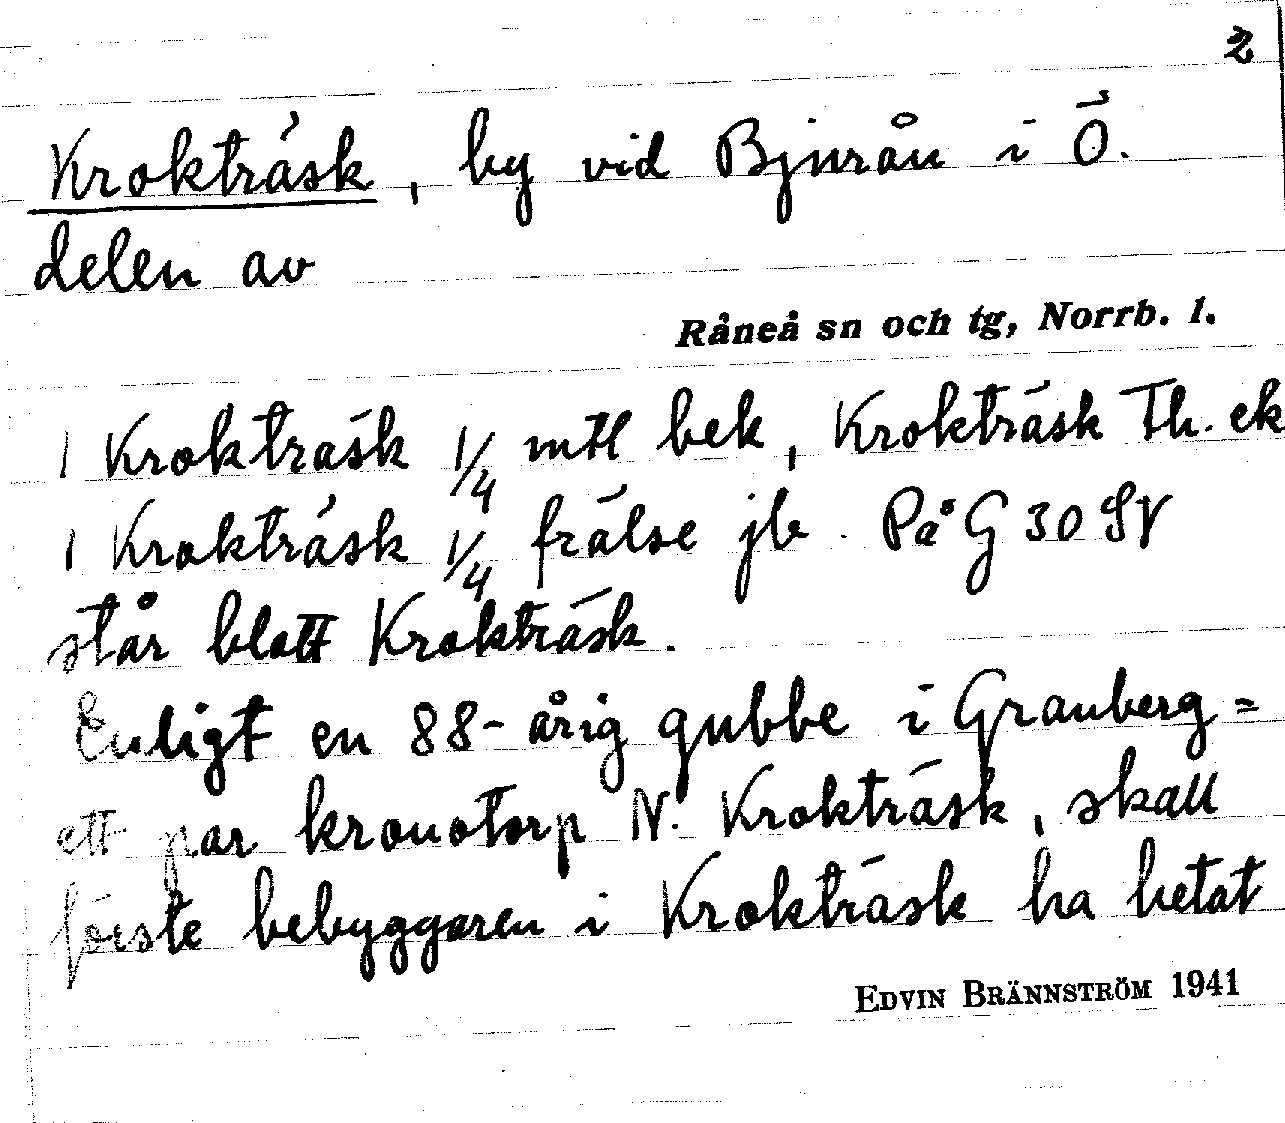 2
Krokträsk, by vid Bjurån i Ö.
delen av
Råneå sn och tg, Norrb. l.
1 Krokträsk 1/4 mtl bek, Krokträsk Th. ek
1 Krokträsk 1/4 frälse jb. På G 30 SV
står blott Krokträsk.
Enligt en 88-årig gubbe i Granberg=
ett par kronotorp N. Krokträsk, skall
förste bebyggaren i Krokträsk ha hetat
EDVIN BRÄNNSTRÖM 1941